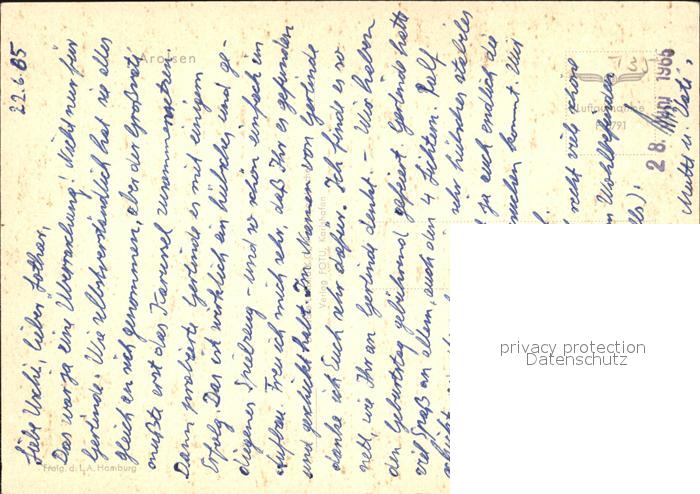 22.6.65
Liebe Uschi, lieber Lothar,
Das war ja eine Überraschung! Nicht nur für
Gerlinde. Wie selbstverständlich hat sie alles
gleich an sich genommen, aber der Großvati
mußte erst das Karussel zusammensetzen.
Dann probierte Gerlinde es mit einigem
Erfolg. Das ist wirklich ein hübsches und ge-
diegenes Spielzeug - und so schön einfach im
Aufbau. Freu ich mich sehr, daß Ihr es gefunden
und geschickt habt. Im Namen von Gerlinde
danke ich Euch sehr dafür. Ich finde es so
nett, wie Ihr an Gerlinde denkt. - Wir haben
den Geburtstag gebührend gefeiert. Gerlinde hatte
viel Spaß an allem, auch den 4 Lichtern. Ralf
sehr hübsches stabiles
ja auch endlich die
kommt. Wir
recht viele schöne
Wohlergehen
Mutti u. Vati.
Arolsen
Luftaufnahme
28. Juni 1966
Verlag FOTO
Freig. d. L.A. Hamburg
privacy protection
Datenschutz